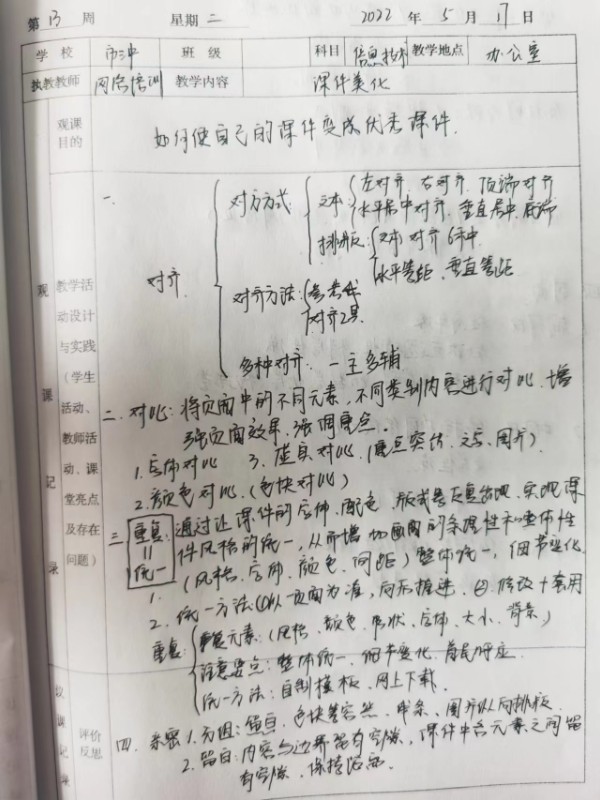 第 13 周 星期 二 2022 年 5 月 17 日
学校 市三中 班级 科目 信息技术 教学地点 办公室
执教教师 网络培训 教学内容 课件美化
观课目的 如何使自己的课件变成优秀课件.
观课记录
教学活动设计与实践（学生活动、教师活动、课堂亮点及存在问题）
一. 对齐
对齐方式 文本 左对齐、右对齐、顶端对齐
水平居中对齐、垂直居中、底端
排版 文本对齐 6种
水平等距、垂直等距
对齐方法: 参考线
对齐工具
多种对齐: 一主多辅
二. 对比: 将页面中的不同元素,不同类别内容进行对比、增
强页面效果、强调重点.
1. 字体对比 3. 虚实对比 (重点突出、文字、图片)
2. 颜色对比、(色块对比)
三 重复 = 统一 通过让课件的字体、配色、版式等反复出现、实现课
件风格的统一,从而增加画面的条理性和整体性
1. (风格、字体、颜色、间距) 整体统一,细节变化
2. 统一方法:①以一页面为准,向后推进、②修改+套用
重复 重复元素:(风格、颜色、形状、字体、大小、背景)
注意要点: 整体统一、细节变化、首尾呼应
统一方法: 自制模板、网上下载.
议课记录 评价反思
四. 亲密 1. 分组: 留白、色块 、 、图片 排版
2. 留白: 内容与边界留有空隙、课件中各元素之间留
有空隙、保持